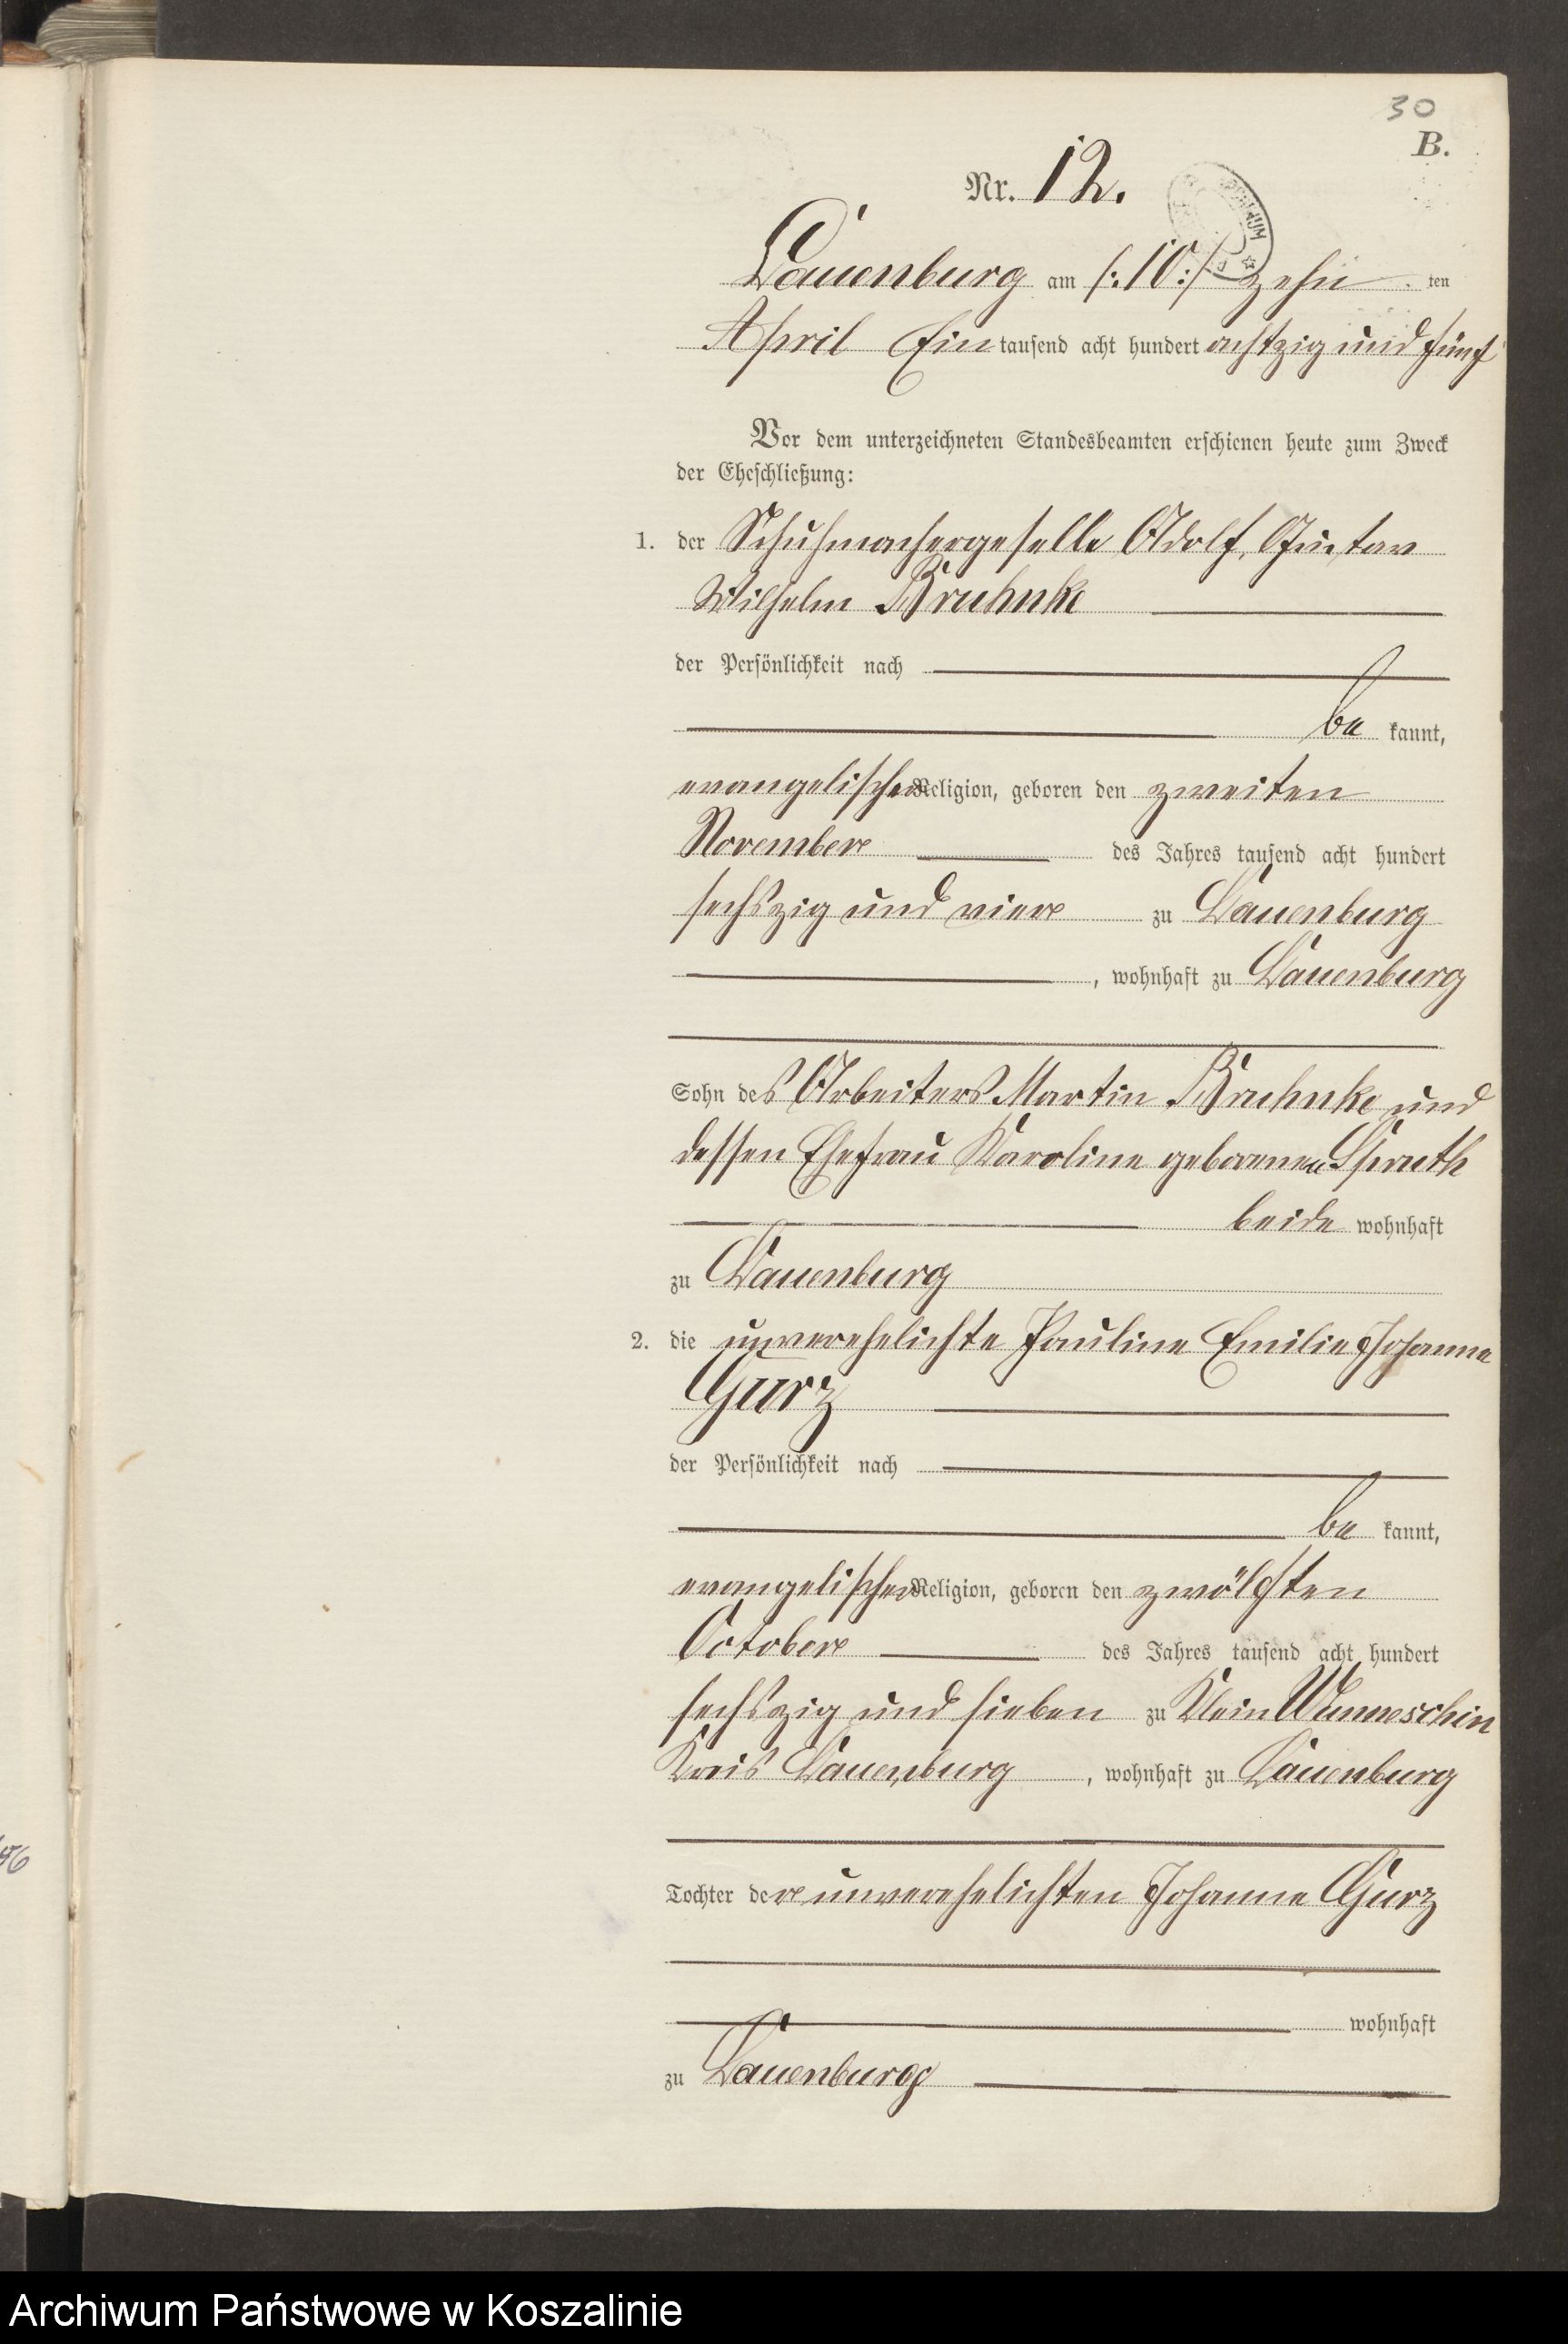 30
B.
Nr. 12.
Lauenburg am /:10:/ zehn ten
April Ein tausend acht hundert achtzig und fünf
Vor dem unterzeichneten Standesbeamten erschienen heute zum Zweck
der Eheschließung:
1. der Schuhmachergeselle Adolf, Gustav
Wilhelm Bruhnke
der Persönlichkeit nach
be kannt,
evangelischer Religion, geboren den zweiten
November des Jahres tausend acht hundert
sechszig und vier zu Lauenburg
, wohnhaft zu Lauenburg
Sohn des Arbeiters Martin Bruhnke und
dessen Ehefrau Karoline geborenen Spruth
beide wohnhaft
zu Lauenburg
2. die unverehelichte Pauline Emilie Johanna
Gurz
der Persönlichkeit nach
be kannt,
evangelischer Religion, geboren den zwölften
October des Jahres tausend acht hundert
sechszig und sieben zu Klein Wunneschin
Kreis Lauenburg , wohnhaft zu Lauenburg
Tochter der unverehelichten Johanne Gurz
wohnhaft
zu Lauenburg
Archiwum Państwowe w Koszalinie